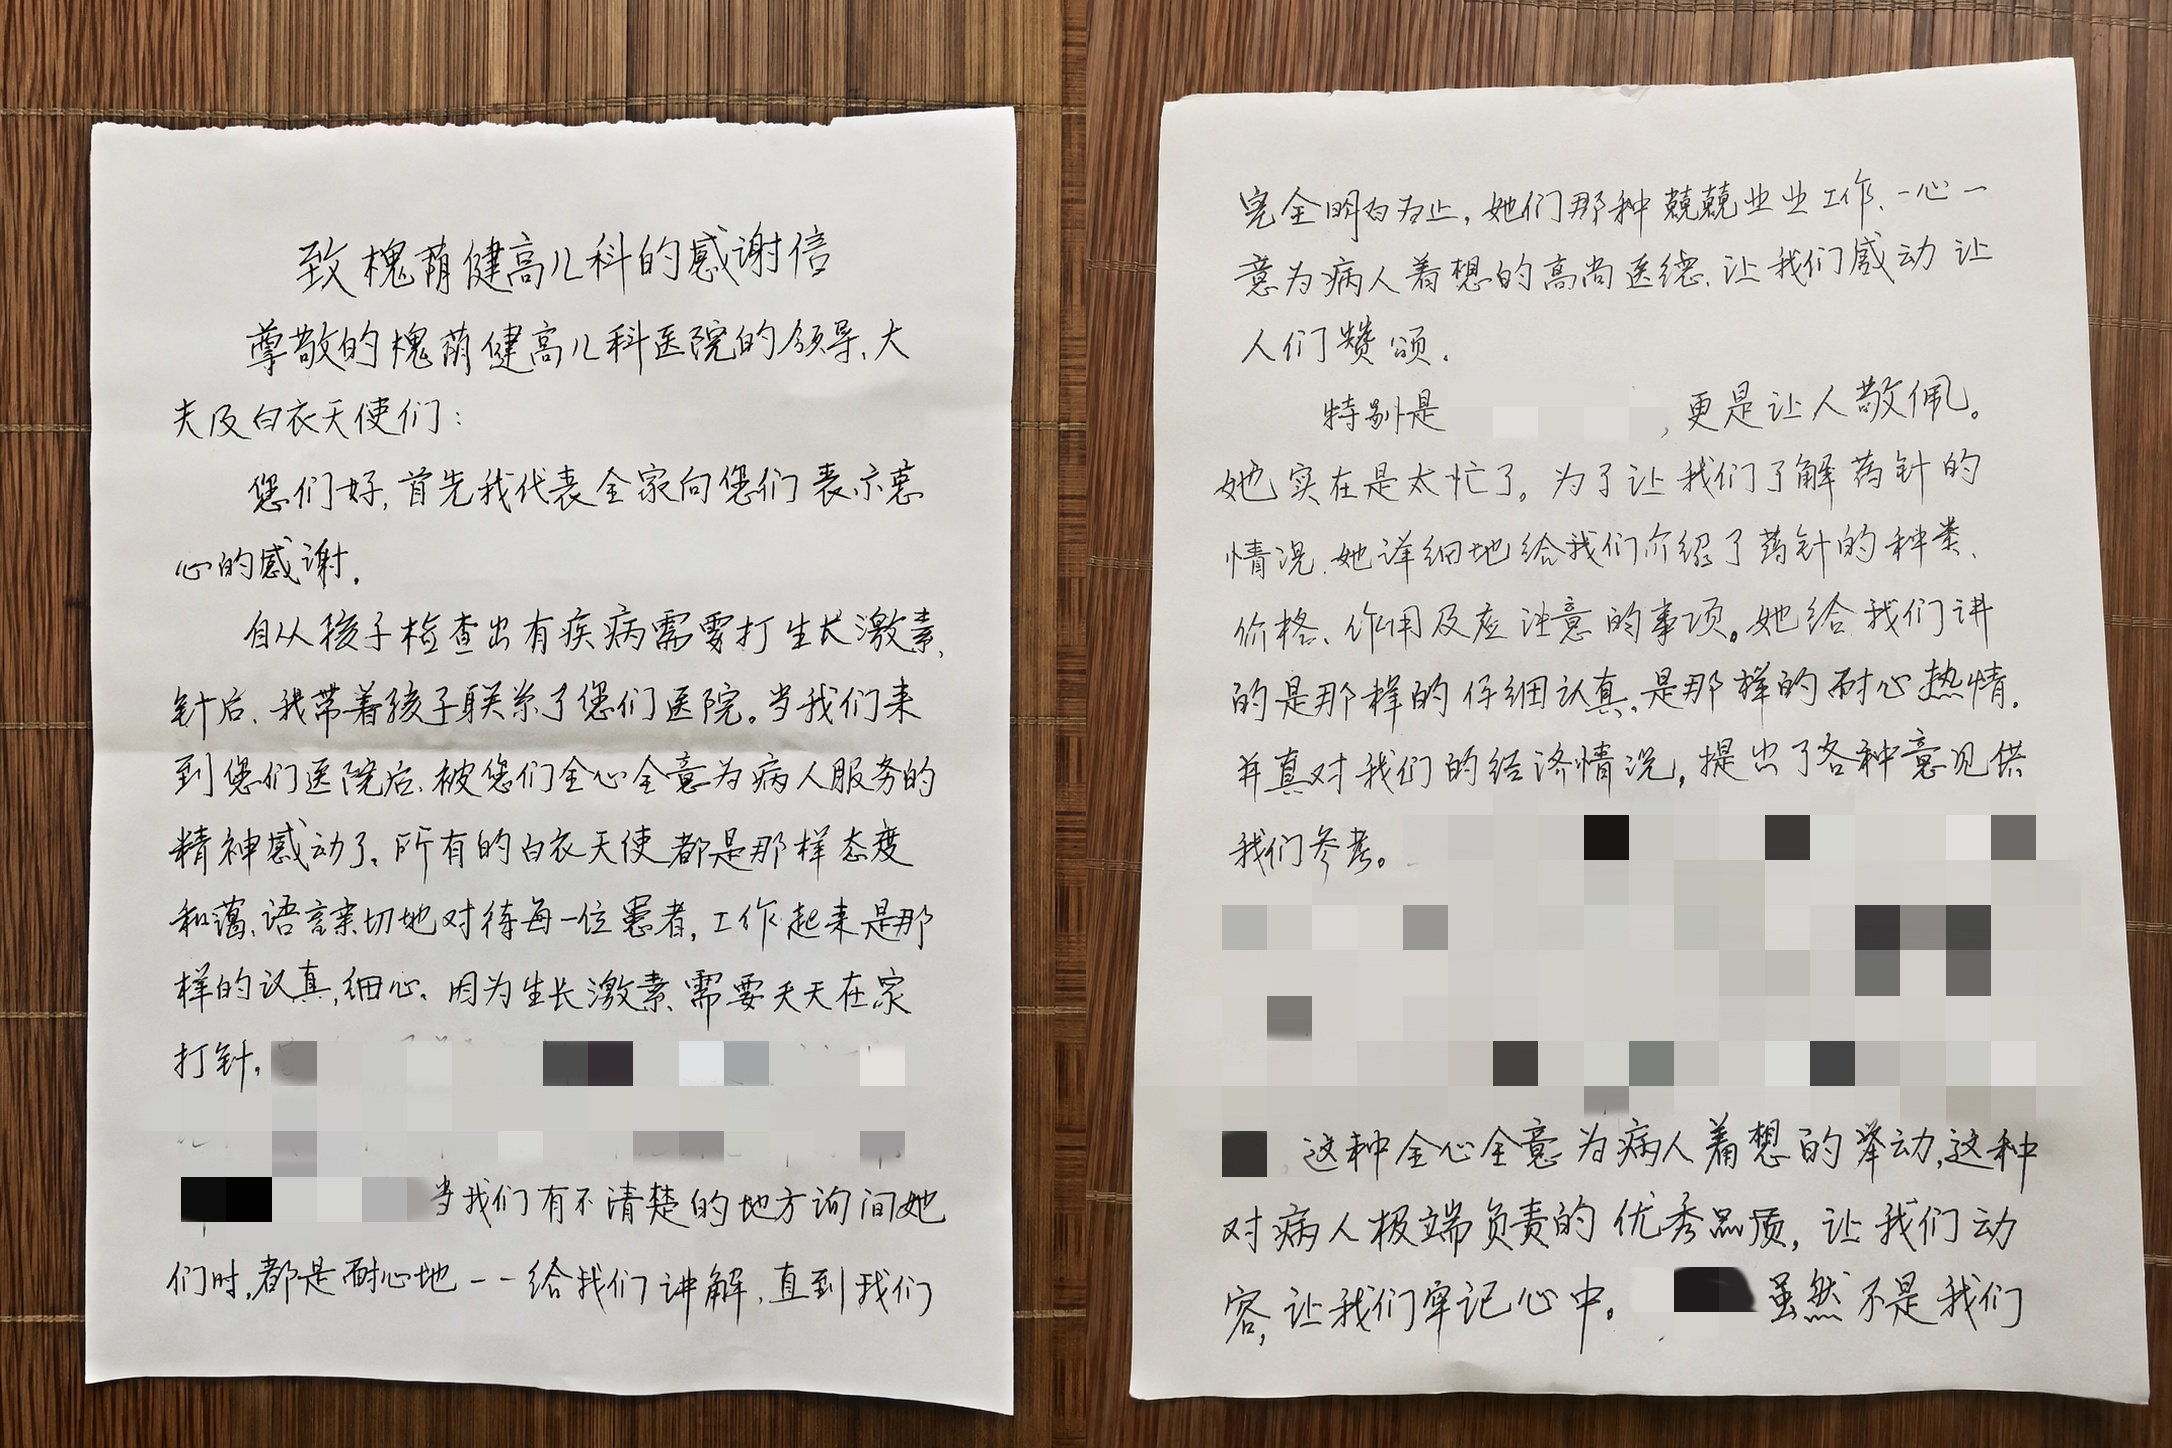 致槐荫健高儿科的感谢信
尊敬的槐荫健高儿科医院的领导、大
夫及白衣天使们：
您们好，首先我代表全家向您们表示衷
心的感谢。
自从孩子检查出有疾病需要打生长激素
针后、我带着孩子联系了您们医院。当我们来
到您们医院后、被您们全心全意为病人服务的
精神感动了、所有的白衣天使都是那样态度
和蔼、语言亲切地对待每一位患者，工作起来是那
样的认真，细心。因为生长激素、需要天天在家
打针。
当我们有不清楚的地方询问她
们时，都是耐心地一一给我们讲解、直到我们
完全明白为止，她们那种兢兢业业工作、一心一
意为病人着想的高尚医德、让我们感动让
人们赞颂．
特别是，更是让人敬佩。
她实在是太忙了。为了让我们了解药针的
情况、她详细地给我们介绍了药针的种类、
价格、作用及应注意的事项。她给我们讲
的是那样的仔细认真、是那样的耐心热情．
并真对我们的经济情况，提出了各种意见供
我们参考。
这种全心全意为病人着想的举动，这种
对病人极端负责的优秀品质，让我们动
容，让我们牢记心中。虽然不是我们